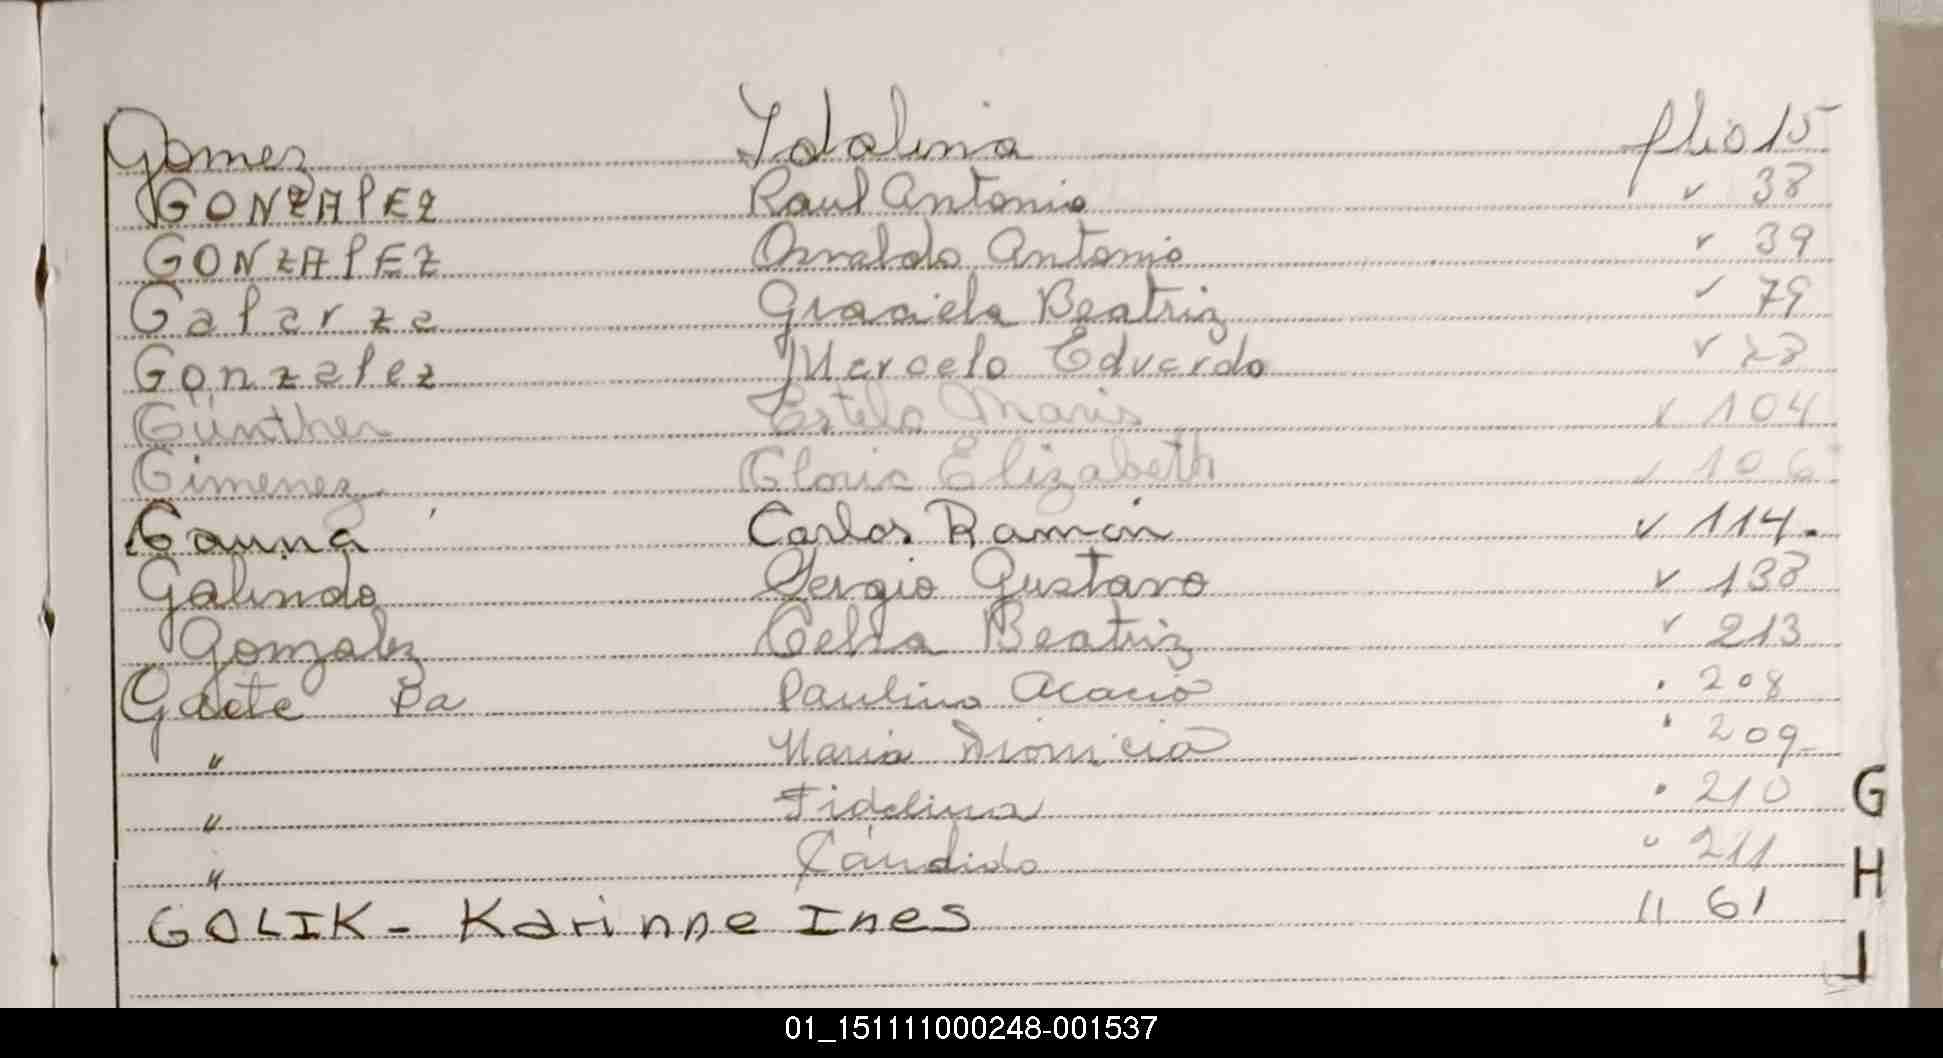 Gomez Ydalina flio 15
GONZALEZ Raul Antonio v 38
GONZALEZ Osvaldo Antonio v 39
Galarza Graciela Beatriz v 79
Gonzalez Marcelo Eduardo v
Günther Estela Maris v 104
Gimenez Gloria Elizabeth v 106
Gauna Carlos Ramón v 114.
Galindo Sergio Gustavo v 138
Gonzalez Celia Beatriz v 213
Gaete Pa Paulino Acacio " 208
" Maria Dionicia " 209
" Fidelina " 210
" Cándido " 211
GOLIK - Karinne Ines " 61
G
H
I
01_151111000248-001537